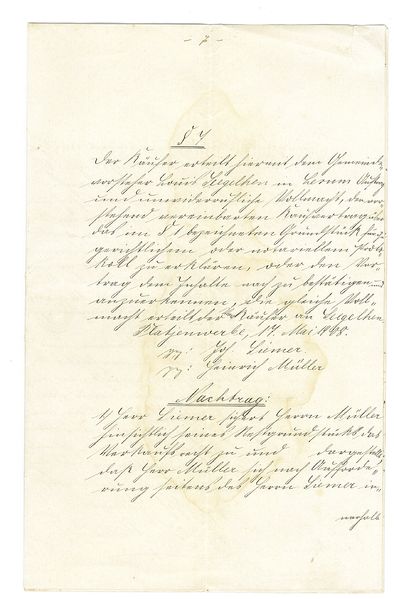 - 7 -
§ 7
Der Käufer erteilt hiermit dem Gemeinde-
vorsteher Louis Segelken in Lesum Auftrag
und unwiderrufliche Vollmacht, den vor-
stehend vereinbarten Kaufvertrag über
das im § 1 bezeichneten Grundstück zu
gerichtlichem oder notariellem Proto-
koll zu erklären, oder den Ver-
trag dem Inhalte nach zu bestätigen und
anzuerkennen, die gleiche Voll-
macht erteilt der Käufer an Segelken
Platjenwerbe, 17. Mai 1908.
gez: Joh. Siemer.
gez: Heinrich Müller
Nachtrag:
1) Herr Siemer sichert Herrn Müller
hinsichtlich seines Restgrundstücks das
Verkaufsrecht zu und dargestellt
daß Herr Müller sich nach Aufforde-
rung seitens des Herrn Siemer in-
nerhalb